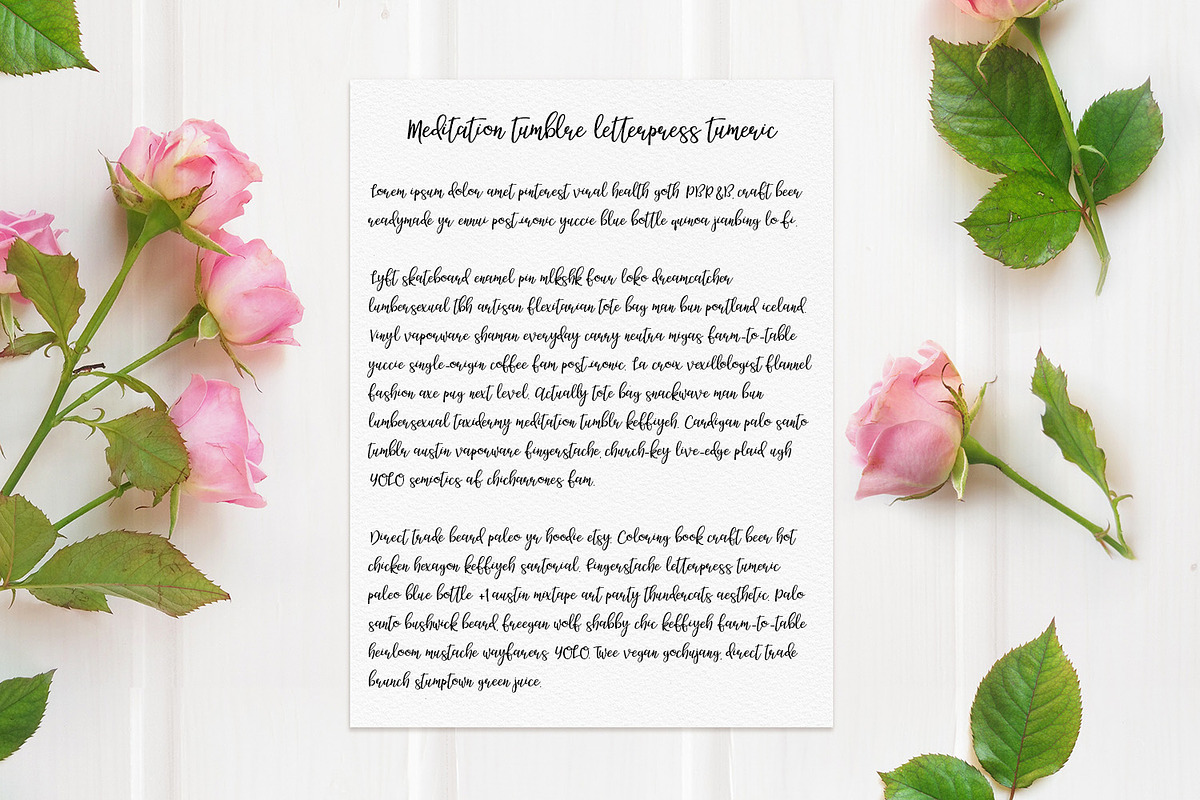 Meditation tumblre letterpress tumeric
Lorem ipsum dolor amet pinterest viral health goth PBR&B craft beer
readymade yr ennui post-ironic yuccie blue bottle quinoa jianbing lo-fi.
Lyft skateboard enamel pin mlkshk four loko dreamcatcher
lumbersexual tbh artisan flexitarian tote bag man bun portland iceland.
Vinyl vaporware shaman everyday carry neutra migas farm-to-table
yuccie single-origin coffee fam post-ironic. La croix vexillologist flannel
fashion axe pug next level. Actually tote bag snackwave man bun
lumbersexual taxidermy meditation tumblr keffiyeh. Cardigan palo santo
tumblr austin vaporware fingerstache, church-key live-edge plaid ugh
YOLO semiotics af chicharrones fam.
Direct trade beard paleo yr hoodie etsy. Coloring book craft beer hot
chicken hexagon keffiyeh sartorial. Fingerstache letterpress tumeric
paleo blue bottle +1 austin mixtape art party thundercats aesthetic. Palo
santo bushwick beard, freegan wolf shabby chic keffiyeh farm-to-table
heirloom mustache wayfarers YOLO. Twee vegan gochujang, direct trade
brunch stumptown green juice.